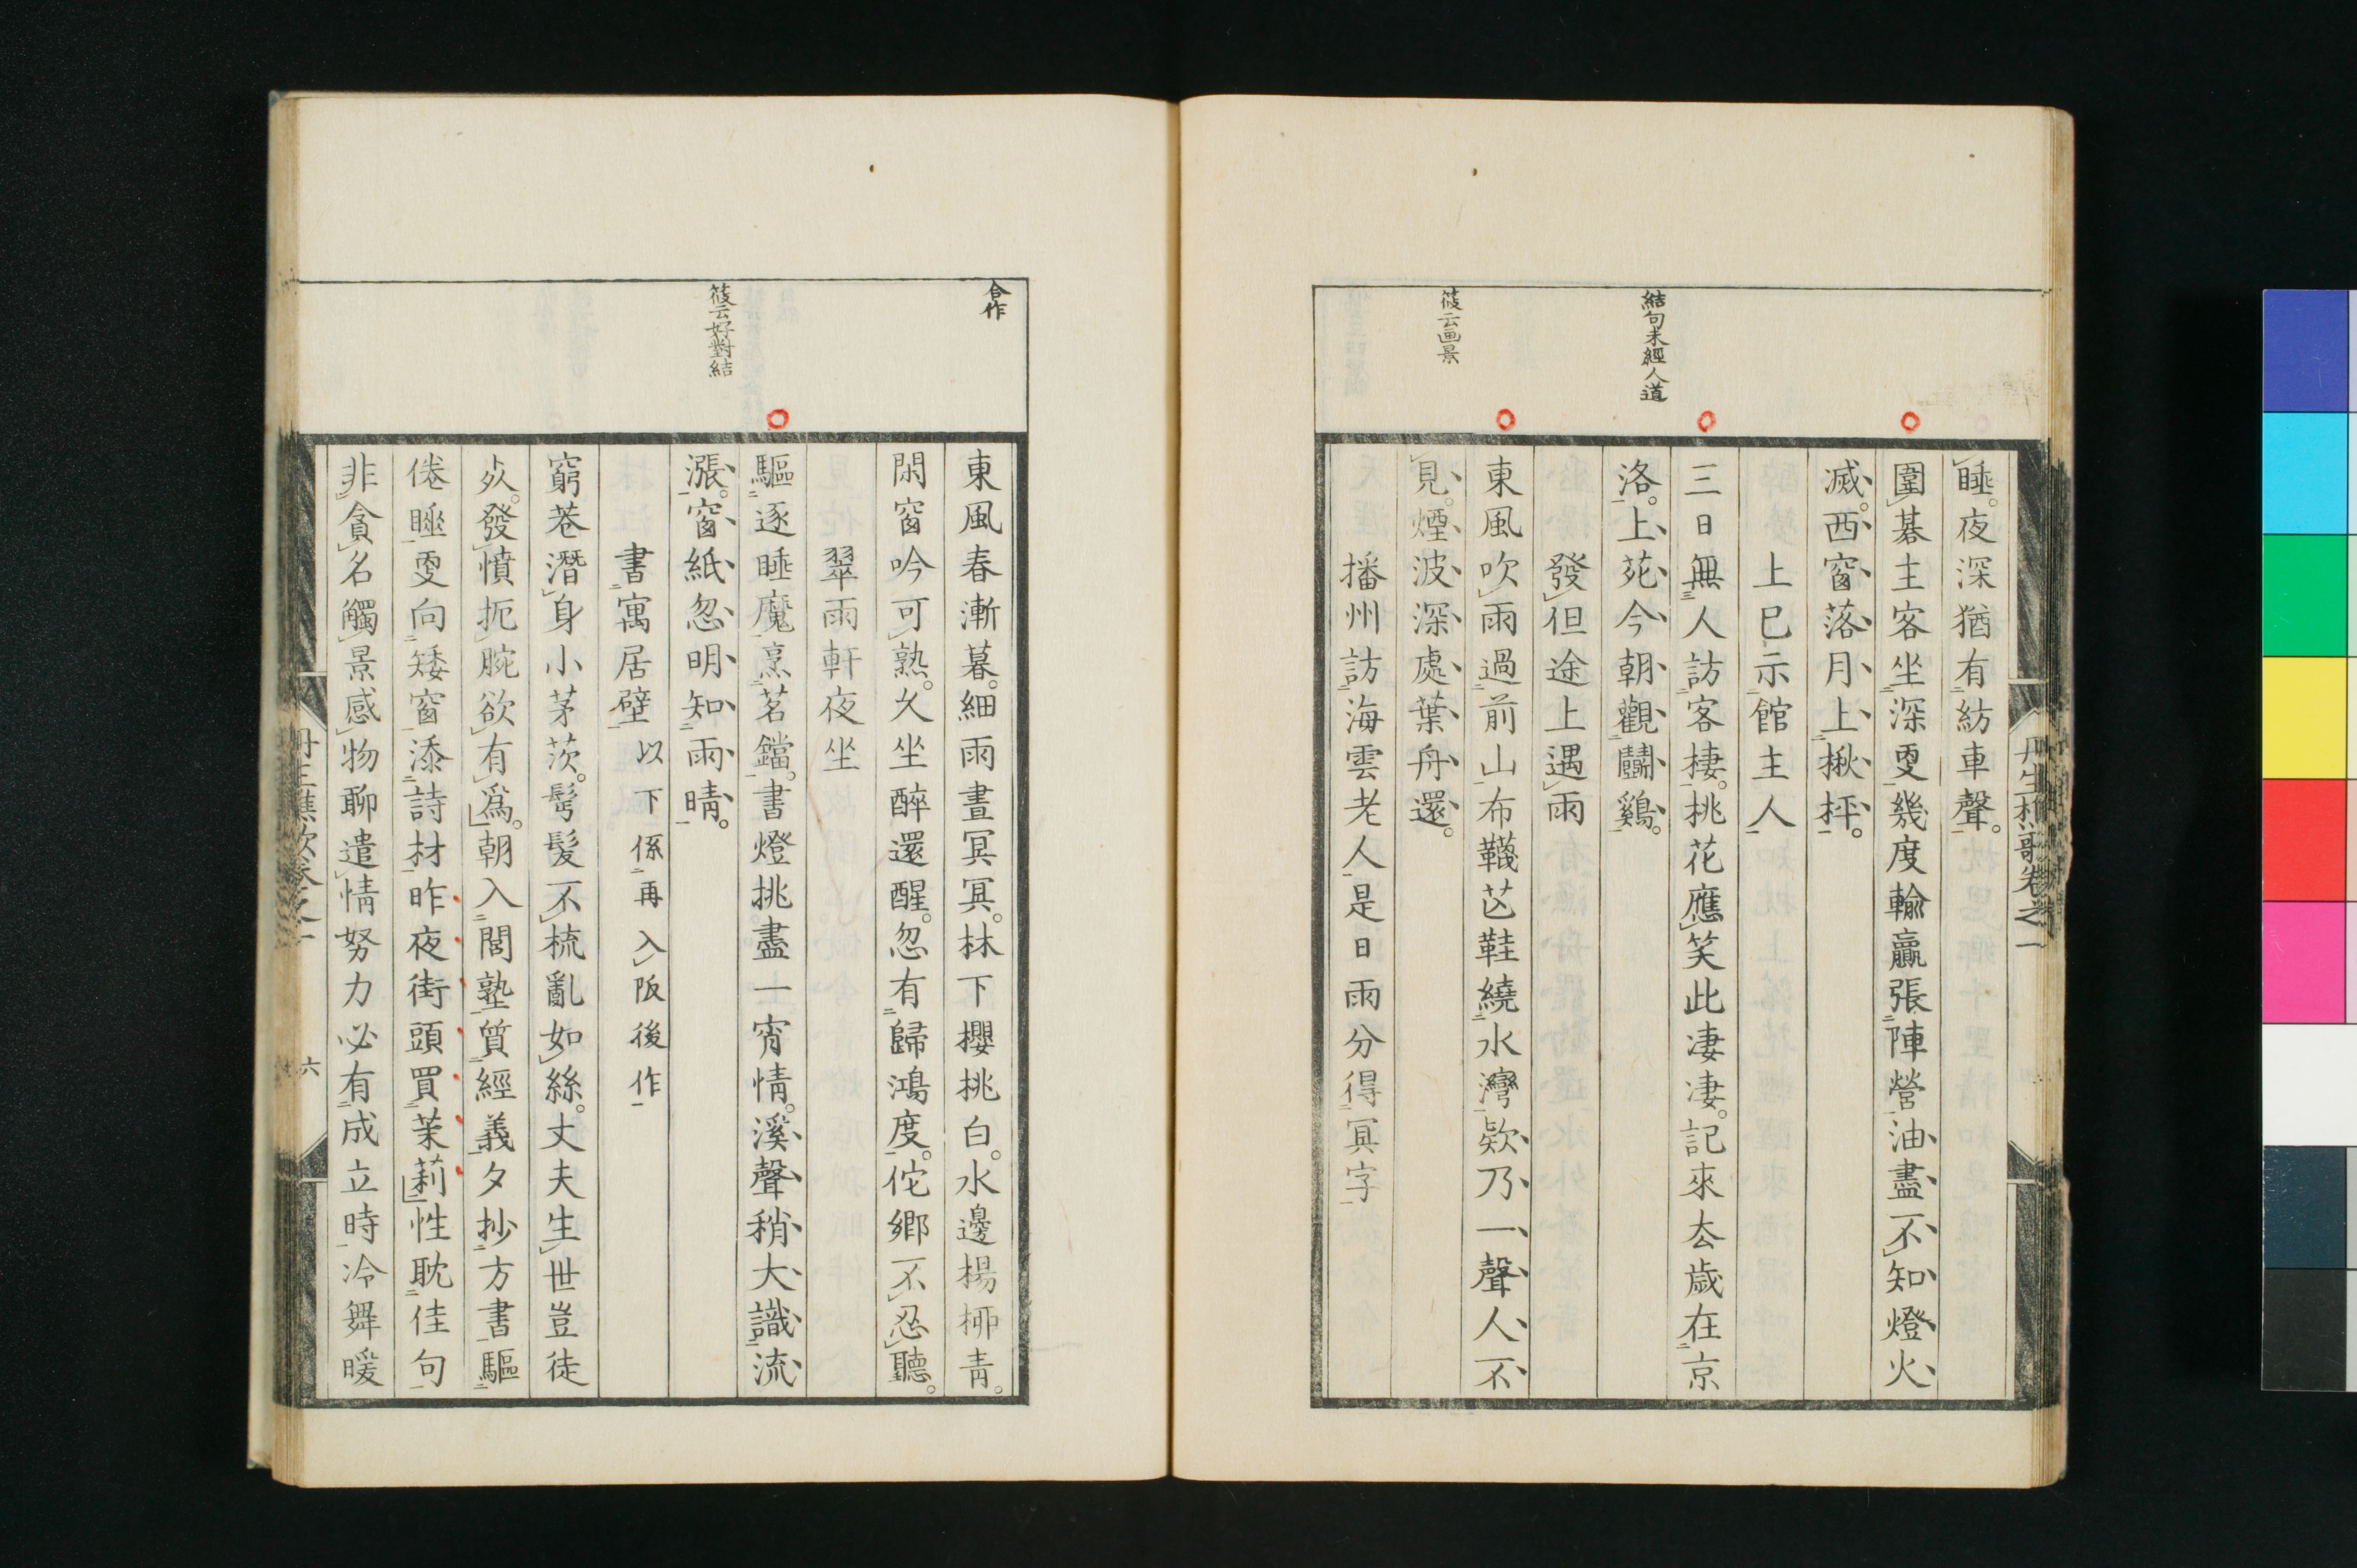 睡。夜深猶有紡車聲。
圍碁主客坐深更幾度輸贏張陣營油盡不知燈火
滅。西窗落月上楸枰。
上巳示館主人
三日無人訪客棲。桃花應笑此凄凄。記來去歲在京
洛。上苑今朝觀鬭鷄。
發但途上遇雨
東風吹雨過前山布韈芒鞋繞水灣欵乃一聲人不
見。煙波深處葉舟還。
播州訪海雲老人是日雨分得冥字
結句未經人道
筱云画景
丹生樵歌卷之一
東風春漸暮。細雨晝冥冥。林下櫻桃白。水邊楊柳青。
閑窗吟可熟。久坐醉還醒。忽有歸鴻度。佗鄉不忍聽。
翠雨軒夜坐
驅逐睡魔烹茗鐺。書燈挑盡一宵情。溪聲稍大識流
漲。窗紙忽明知雨晴。
書寓居壁以下係再入阪後作
窮巷潛身小茅茨。髩髮不梳亂如絲。丈夫生世豈徒
死。發憤扼腕欲有爲。朝入閭塾質經義夕抄方書驅
倦睡更向矮窗添詩材昨夜街頭買茉莉性耽佳句
非貪名觸景感物聊遣情努力必有成立時冷舞暖
合作
筱云好對結
丹生樵歌卷之一
六